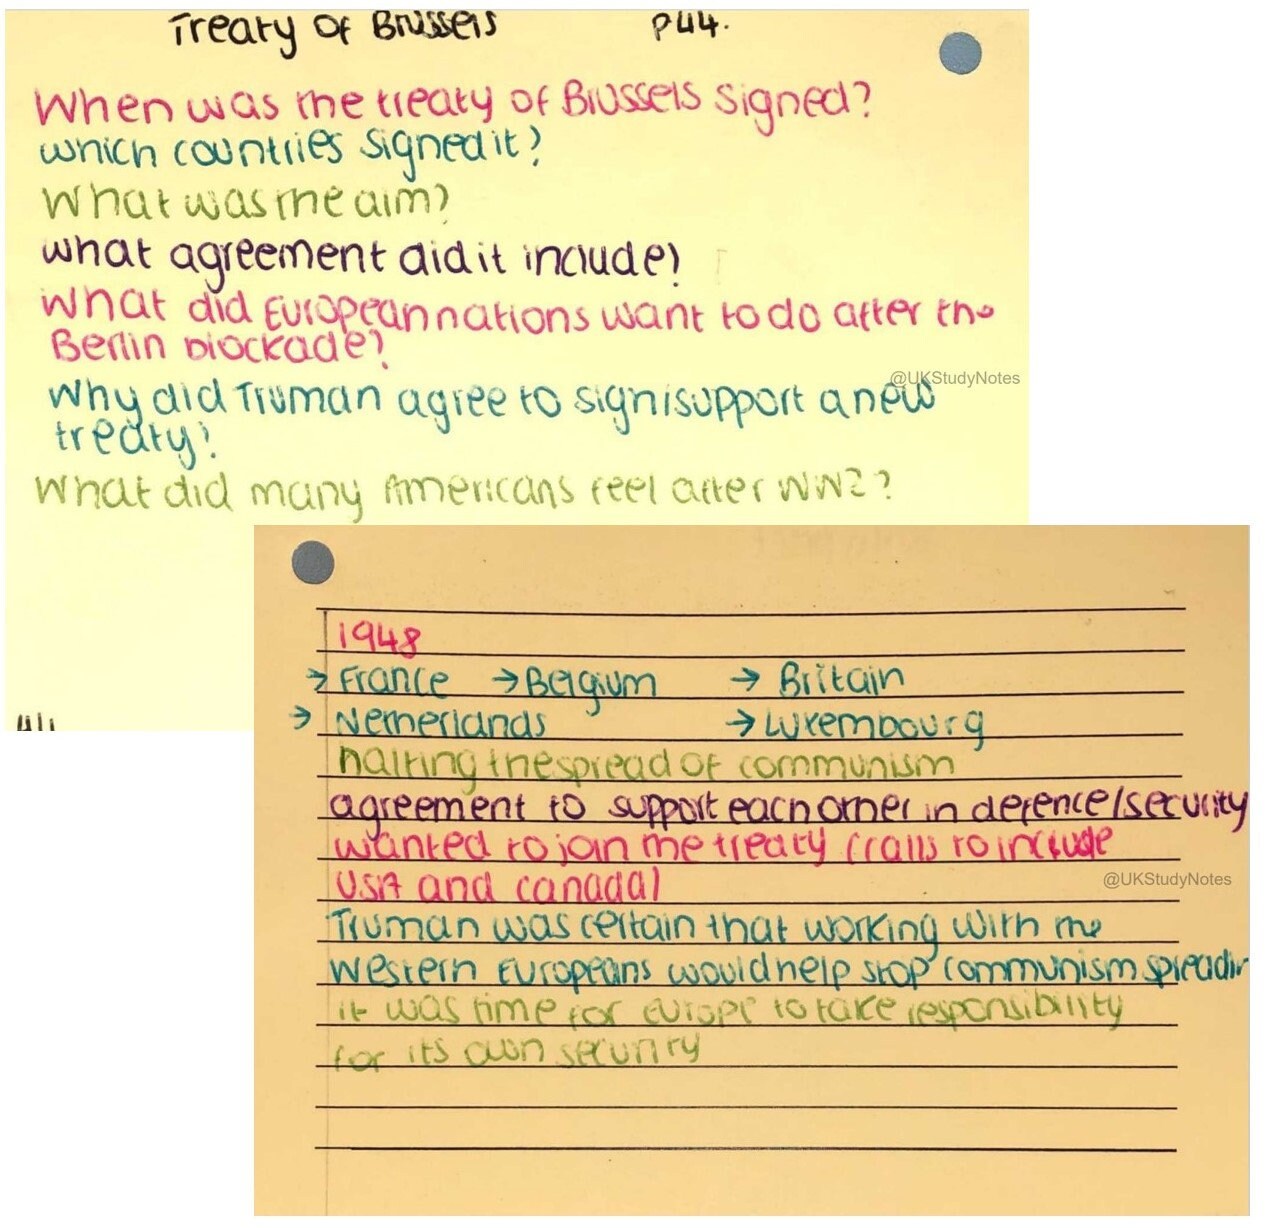 Treaty of Brussels P44.
When was the treaty of Brussels signed?
which countries signed it?
What was the aim?
what agreement did it include?
What did European nations want to do after the
Berlin blockade?
@UKStudyNotes
Why did Truman agree to sign/support a new
treaty?
What did many Americans feel after WW2?
1948
→ France → Belgium → Britain
→ Netherlands → Luxembourg
halting the spread of communism
agreement to support each other in defence/security
wanted to join the treaty (calls to include
USA and canada)
@UKStudyNotes
Truman was certain that working with the
western Europeans would help stop communism spreadin
it was time for europe to take responsibility
for its own security